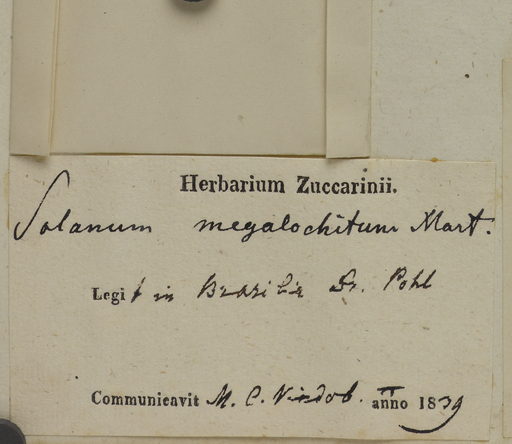 Herbarium Zuccarinii.
Solanum megalochitum Mart.
Legit in Brasilia Dr. Pohl
Communicavit M. C. Vindob. anno 1839